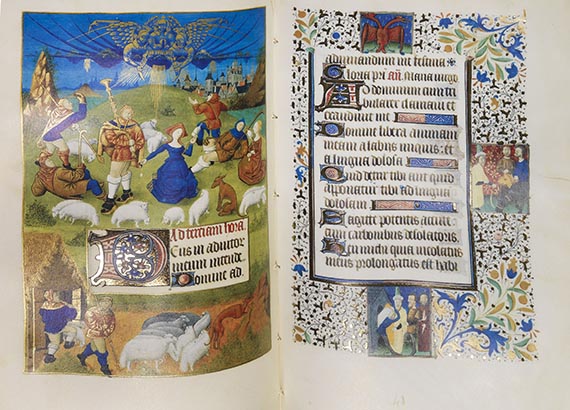 Ad tertiam hora.
Eus in adiutor
meum intende.
Domine ad
adiuvandum me festina
Gloria pri añ. Maria virgo
Ad dominum cum tri
bularer clamavi et
exaudivit me
Domine libera animam
meam a labiis iniquis. et
a lingua dolosa
Quid detur tibi aut quid
apponatur tibi ad linguam
dolosam
Sagitte potentis acute
cum carbonibus desolatoriis.
Heu michi quia incolatus
meus prolongatus est habi